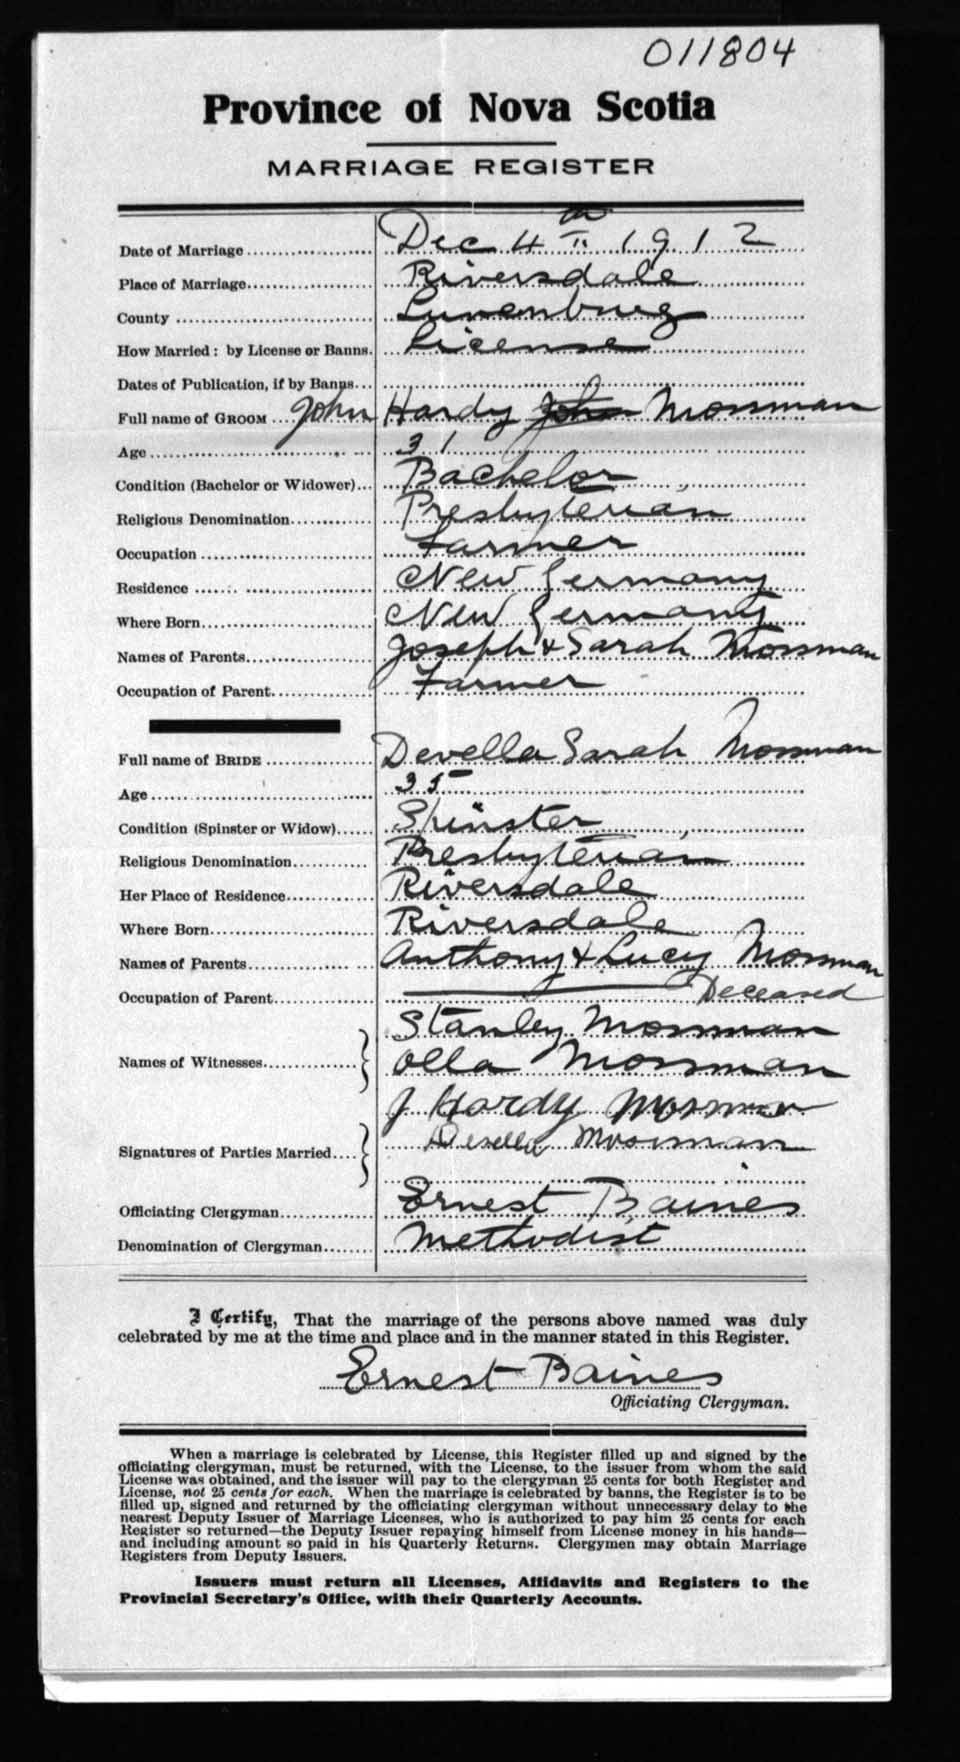 011804
Province of Nova Scotia
MARRIAGE REGISTER
Date of Marriage Dec 4th 1912
Place of Marriage Riversdale
County Lunenburg
How Married: by License or Banns. License
Dates of Publication, if by Banns...
Full name of GROOM John Hardy John Mossman
Age 31
Condition (Bachelor or Widower)... Bachelor
Religious Denomination Presbyterian
Occupation Farmer
Residence New Germany
Where Born New Germany
Names of Parents Joseph & Sarah Mossman
Occupation of Parent Farmer
Full name of BRIDE Devella Sarah Mossman
Age 35
Condition (Spinster or Widow) Spinster
Religious Denomination Presbyterian
Her Place of Residence Riversdale
Where Born Riversdale
Names of Parents Anthony & Lucy Mossman
Occupation of Parent Deceased
Stanley Mossman
Names of Witnesses Olla Mossman
J Hardy Mossman
Signatures of Parties Married Devella Mossman
Officiating Clergyman Ernest Baines
Denomination of Clergyman Methodist
I Certify, That the marriage of the persons above named was duly
celebrated by me at the time and place and in the manner stated in this Register.
Ernest Baines
Officiating Clergyman.
When a marriage is celebrated by License, this Register filled up and signed by the
officiating clergyman, must be returned, with the License, to the issuer from whom the said
License was obtained, and the issuer will pay to the clergyman 25 cents for both Register and
License, not 25 cents for each. When the marriage is celebrated by banns, the Register is to be
filled up, signed and returned by the officiating clergyman without unnecessary delay to the
nearest Deputy Issuer of Marriage Licenses, who is authorized to pay him 25 cents for each
Register so returned—the Deputy Issuer repaying himself from License money in his hands—
and including amount so paid in his Quarterly Returns. Clergymen may obtain Marriage
Registers from Deputy Issuers.
Issuers must return all Licenses, Affidavits and Registers to the
Provincial Secretary's Office, with their Quarterly Accounts.